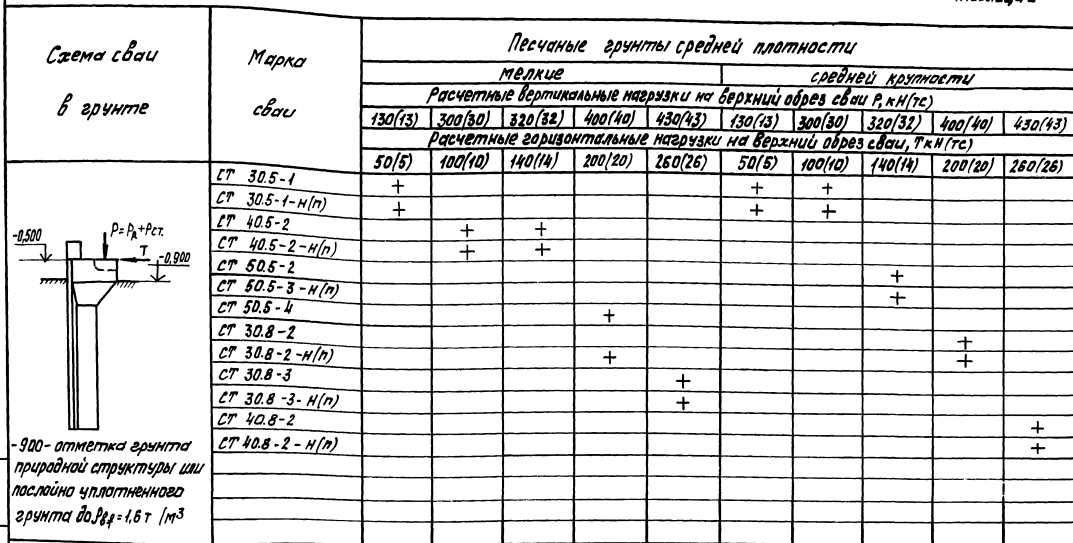 Схема сваи
в грунте
Марка
сваи
Песчаные грунты средней плотности
мелкие
средней крупности
Расчетные вертикальные нагрузки на верхний обрез сваи P, кН(тс)
130(13) 300(30) 320(32) 400(40) 430(43) 130(13) 300(30) 320(32) 400(40) 430(43)
Расчетные горизонтальные нагрузки на верхний обрез сваи, T кН(тс)
50(5) 100(10) 140(14) 200(20) 260(26) 50(5) 100(10) 140(14) 200(20) 260(26)
СТ 30.5-1 + + +
СТ 30.5-1-н(п) + + +
СТ 40.5-2 + +
СТ 40.5-2-н(п) + +
СТ 50.5-2 +
СТ 50.5-3-н(п) +
СТ 50.5-4 +
СТ 30.8-2 +
СТ 30.8-2-н(п) + +
СТ 30.8-3 +
СТ 30.8-3-н(п) +
СТ 40.8-2 +
СТ 40.8-2-н(п) +
-0,500
T
-0,900
-900-отметка грунта
природной структуры или
послойно уплотненного
грунта до =1,6т/м3